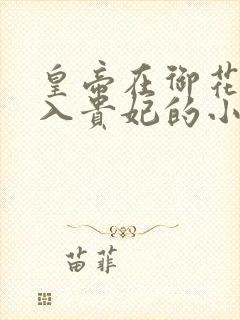 皇帝在御花
入贵妃的小
苗菲